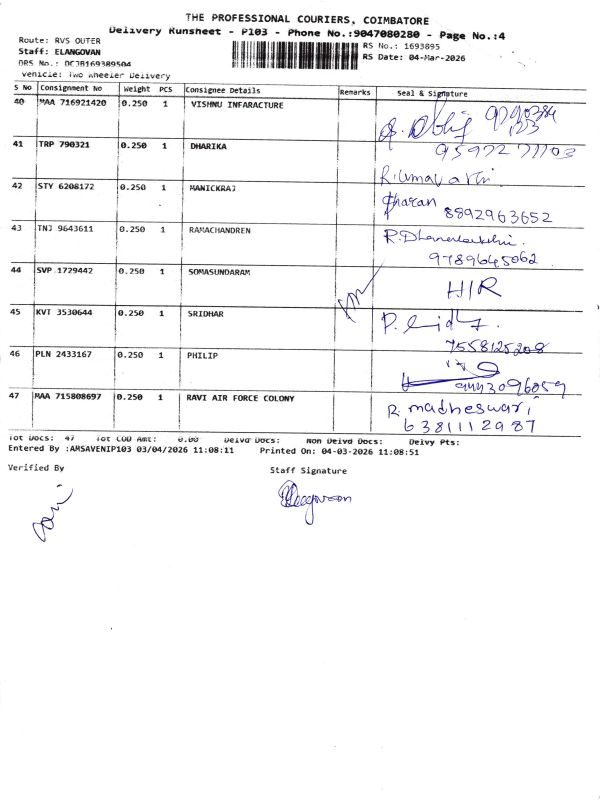 THE PROFESSIONAL COURIERS, COIMBATORE
Delivery Runsheet - P103 - Phone No.:9047080280 - Page No.:4
Route: RVS OUTER
RS No.: 1693895
Staff: ELANGOVAN
RS Date: 04-Mar-2026
DRS No.: DCJB169389504
Vehicle: Two Wheeler Delivery
S No Consignment No Weight PCS Consignee Details Remarks Seal & Signature
40 MAA 716921420 0.250 1 VISHNU INFARACTURE
41 TRP 790321 0.250 1 DHARIKA 9597271103
R. Umavathi
42 STY 6208172 0.250 1 MANICKRAJ
8892963652
43 TNJ 9643611 0.250 1 RAMACHANDREN R. Dhanalakshmi
9789645062
44 SVP 1729442 0.250 1 SOMASUNDARAM H/R
45 KVT 3530644 0.250 1 SRIDHAR
7558125208
46 PLN 2433167 0.250 1 PHILIP
9443096059
47 MAA 715808697 0.250 1 RAVI AIR FORCE COLONY R. madheswari
6381112987
Tot Docs: 47 Tot COD Amt: 0.00 Delvd Docs: Non Delvd Docs: Delvy Pts:
Entered By :AMSAVENIP103 03/04/2026 11:08:11 Printed On: 04-03-2026 11:08:51
Verified By Staff Signature
Elangovan